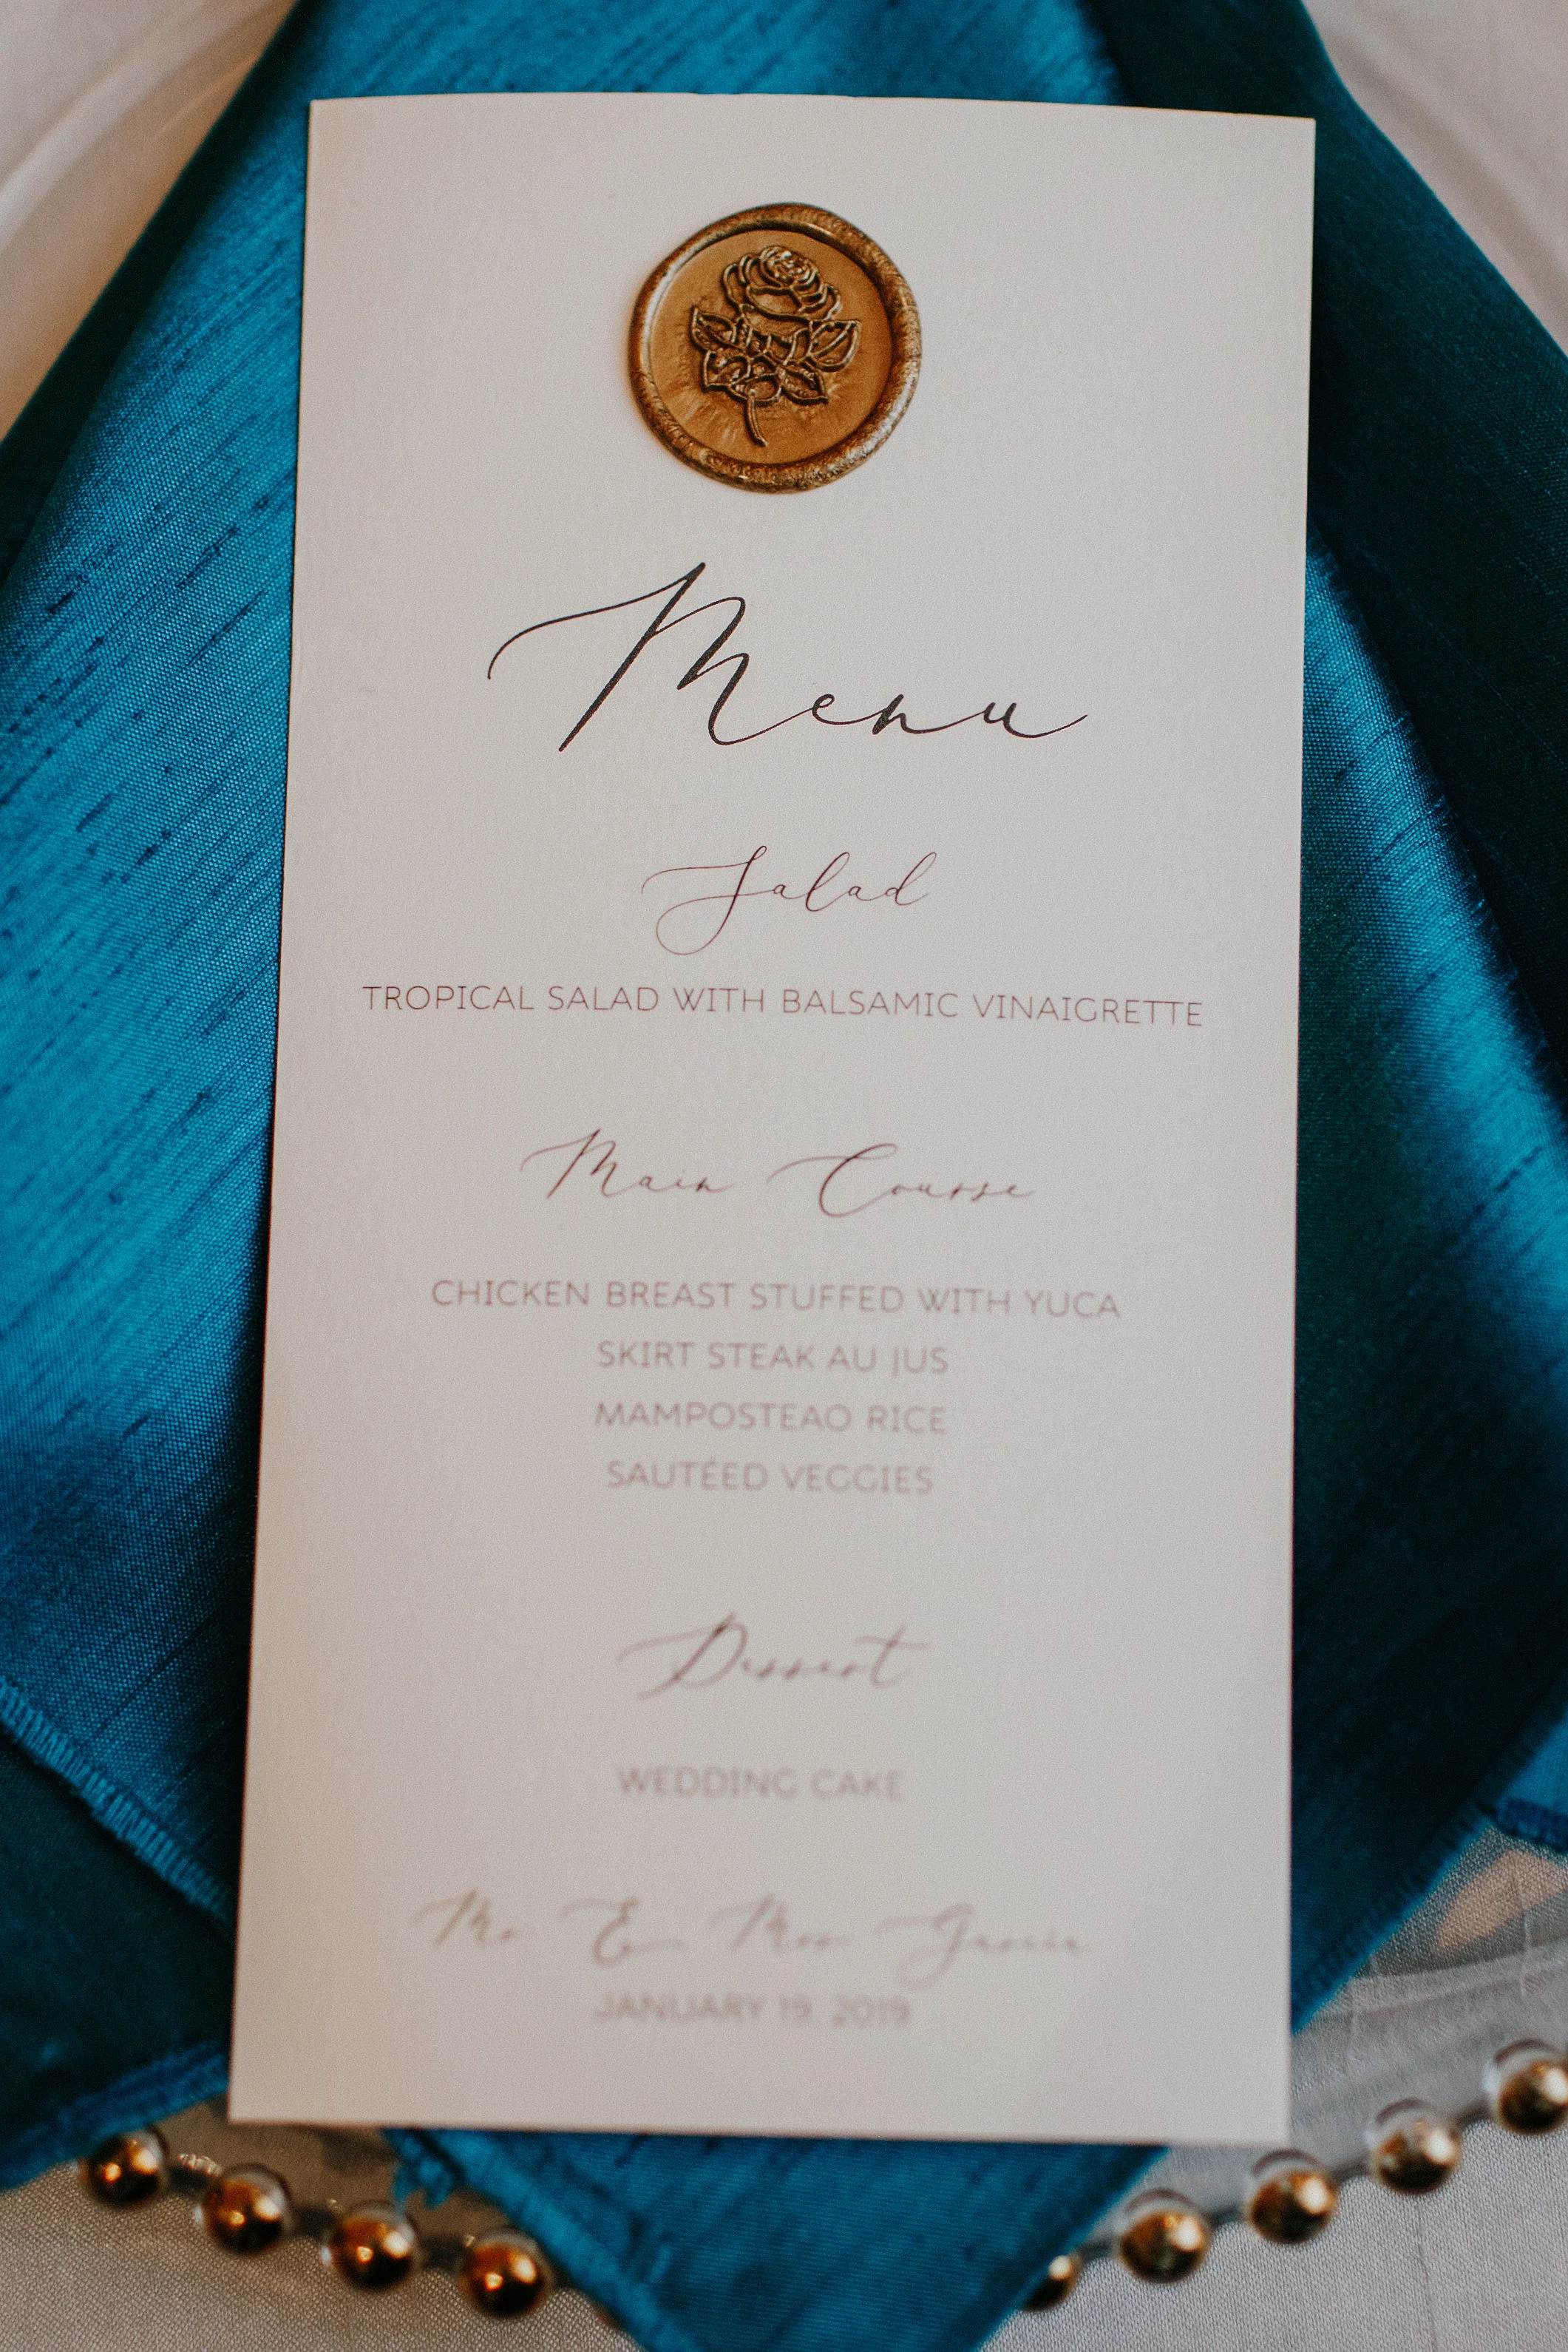 Menu
Salad
TROPICAL SALAD WITH BALSAMIC VINAIGRETTE
Main Course
CHICKEN BREAST STUFFED WITH YUCA
SKIRT STEAK AU JUS
MAMPOSTEAO RICE
SAUTÉED VEGGIES
Dessert
WEDDING CAKE
Mr & Mrs Garcia
JANUARY 19, 2019